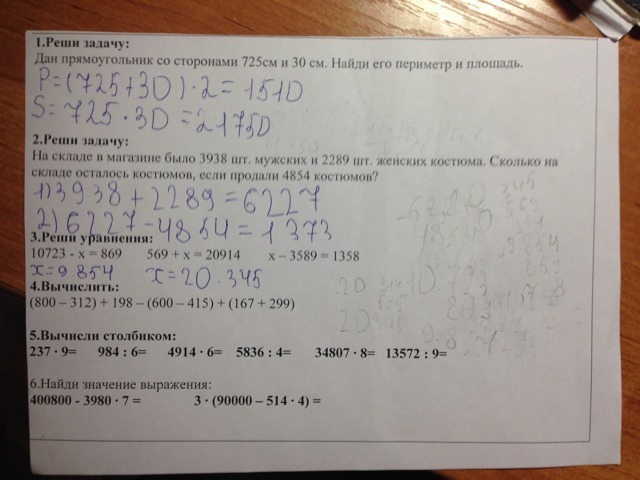 1.Реши задачу:
Дан прямоугольник со сторонами 725см и 30 см. Найди его периметр и площадь.
P=(725+30)·2=1510
S=725·30=21750
2.Реши задачу:
На складе в магазине было 3938 шт. мужских и 2289 шт. женских костюма. Сколько на
складе осталось костюмов, если продали 4854 костюмов?
1)3938+2289=6227
2)6227-4854=1373
3.Реши уравнения:
10723 - x = 869 569 + x = 20914 x – 3589 = 1358
x=9.854 x=20.345
4.Вычислить:
(800 – 312) + 198 – (600 – 415) + (167 + 299)
5.Вычисли столбиком:
237 · 9= 984 : 6= 4914 · 6= 5836 : 4= 34807 · 8= 13572 : 9=
6.Найди значение выражения:
400800 - 3980 · 7 = 3 · (90000 – 514 · 4) =